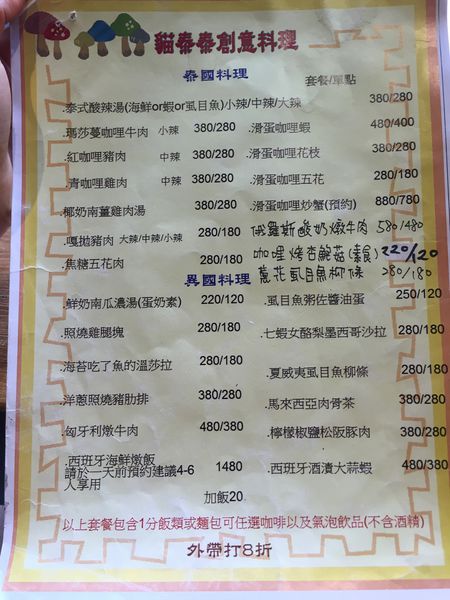 貓泰泰創意料理
泰國料理
套餐/單點
.泰式酸辣湯(海鮮or蝦or虱目魚)小辣/中辣/大辣 380/280
.瑪莎蔓咖哩牛肉 小辣 380/280
.滑蛋咖哩蝦 480/400
.紅咖哩豬肉 中辣 380/280
.滑蛋咖哩花枝 380/280
.青咖哩雞肉 中辣 380/280
.滑蛋咖哩五花 280/180
.椰奶南薑雞肉湯 380/280
.滑蛋咖哩炒蟹(預約) 880/780
.嘎拋豬肉 大辣/中辣/小辣 280/180
俄羅斯酸奶燉牛肉 580/480
.焦糖五花肉 280/180
咖哩烤杏鮑菇(素食) 220/120
蔥花虱目魚柳條 280/180
異國料理
.鮮奶南瓜濃湯(蛋奶素) 220/120
.虱目魚粥佐醬油蛋 250/120
.照燒雞腿塊 280/180
.七蝦女酪梨墨西哥沙拉 280/180
.海苔吃了魚的溫莎拉 280/180
.夏威夷虱目魚柳條 280/180
.洋蔥照燒豬肋排 380/280
.馬來西亞肉骨茶 380/280
.匈牙利燉牛肉 480/380
.檸檬椒鹽松阪豚肉 380/280
.西班牙海鮮燉飯 1480
請於一天前預約建議4-6人享用
.西班牙酒漬大蒜蝦 480/380
加飯20
以上套餐包含1分飯類或麵包可任選咖啡以及氣泡飲品(不含酒精)
外帶打8折